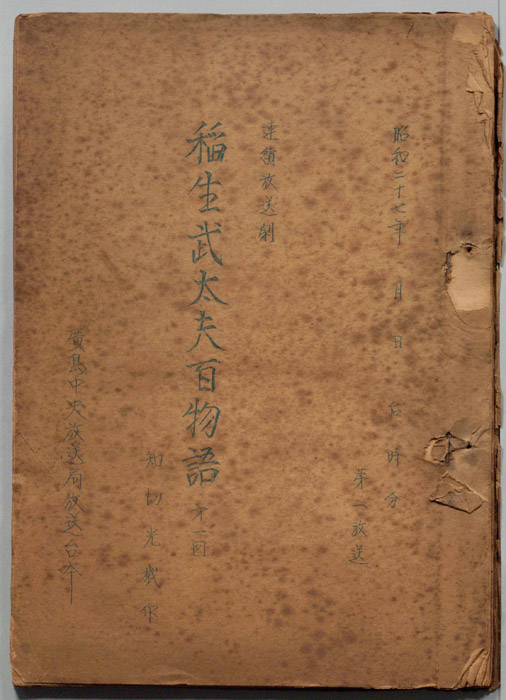 昭和二十七年 月 日 后 時 分
第一放送
連續放送劇
稲生武太夫百物語 第一回
知切光歳作
廣島中央放送局放送台本